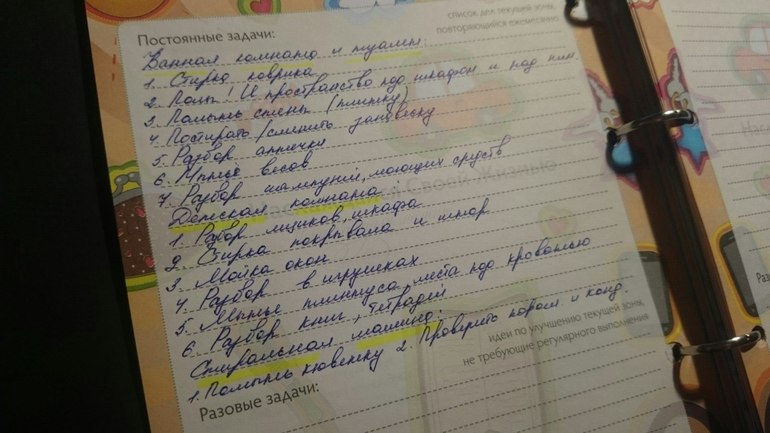 список дел текущей зоны,
повторяющийся ежемесячно
Постоянные задачи:
Ванная комната и туалет:
1. Стирка коврика
2. Полы! И пространство под шкафом и над ним
3. Помыть стены (плитку)
4. Постирать/сменить занавеску
5. Разбор аптечки
6. Мытьё весов
7. Разбор шампуней, моющих средств
Детская комната:
1. Разбор ящиков, шкафа
2. Стирка покрывала и штор
3. Мойка окон
4. Разбор в игрушках
5. Мытье плинтуса, места под кроватью
6. Разбор книг, тетрадей
Стиральная машина:
1. Помыть кюветку 2. Проверить порош. и конд.
идеи по улучшению текущей зоны,
не требующие регулярного выполнения
Разовые задачи: